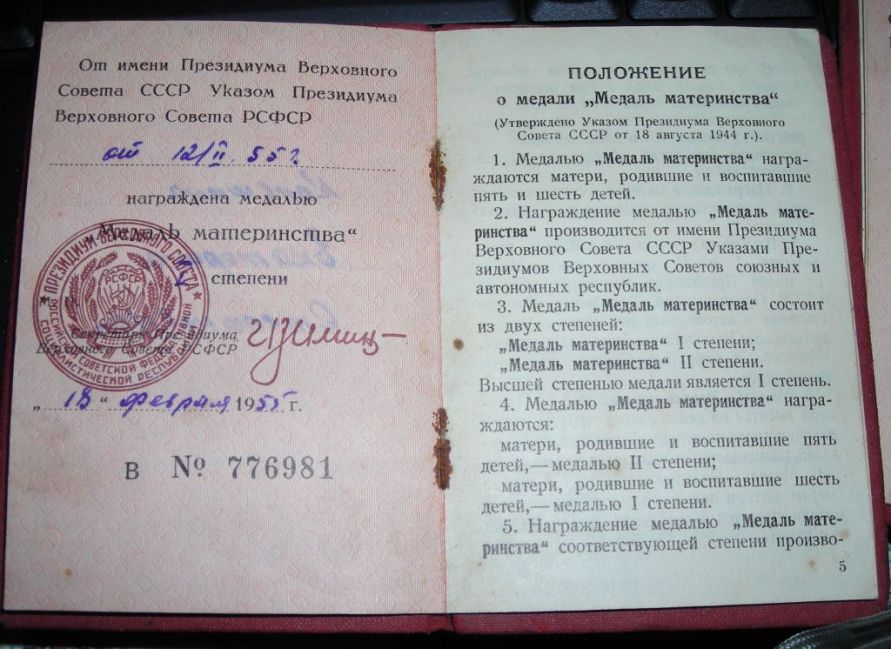 От имени Президиума Верховного
Совета СССР Указом Президиума
Верховного Совета РСФСР
от 12/II. 55 г.
награждена медалью
„Медаль материнства“
степени
Секретарь Президиума
Верховного Совета РСФСР
„18“ февраля 1955 г.
В № 776981
ПРЕЗИДИУМ ВЕРХОВНОГО СОВЕТА
РСФСР
ПОЛОЖЕНИЕ
о медали „Медаль материнства“
(Утверждено Указом Президиума Верховного
Совета СССР от 18 августа 1944 г.).
1. Медалью „Медаль материнства“ награ-
ждаются матери, родившие и воспитавшие
пять и шесть детей.
2. Награждение медалью „Медаль мате-
ринства“ производится от имени Президиума
Верховного Совета СССР Указами Пре-
зидиумов Верховных Советов союзных и
автономных республик.
3. Медаль „Медаль материнства“ состоит
из двух степеней:
„Медаль материнства“ I степени;
„Медаль материнства“ II степени.
Высшей степенью медали является I степень.
4. Медалью „Медаль материнства“ награ-
ждаются:
матери, родившие и воспитавшие пять
детей,— медалью II степени;
матери, родившие и воспитавшие шесть
детей,— медалью I степени.
5. Награждение медалью „Медаль мате-
ринства“ соответствующей степени произво-
5